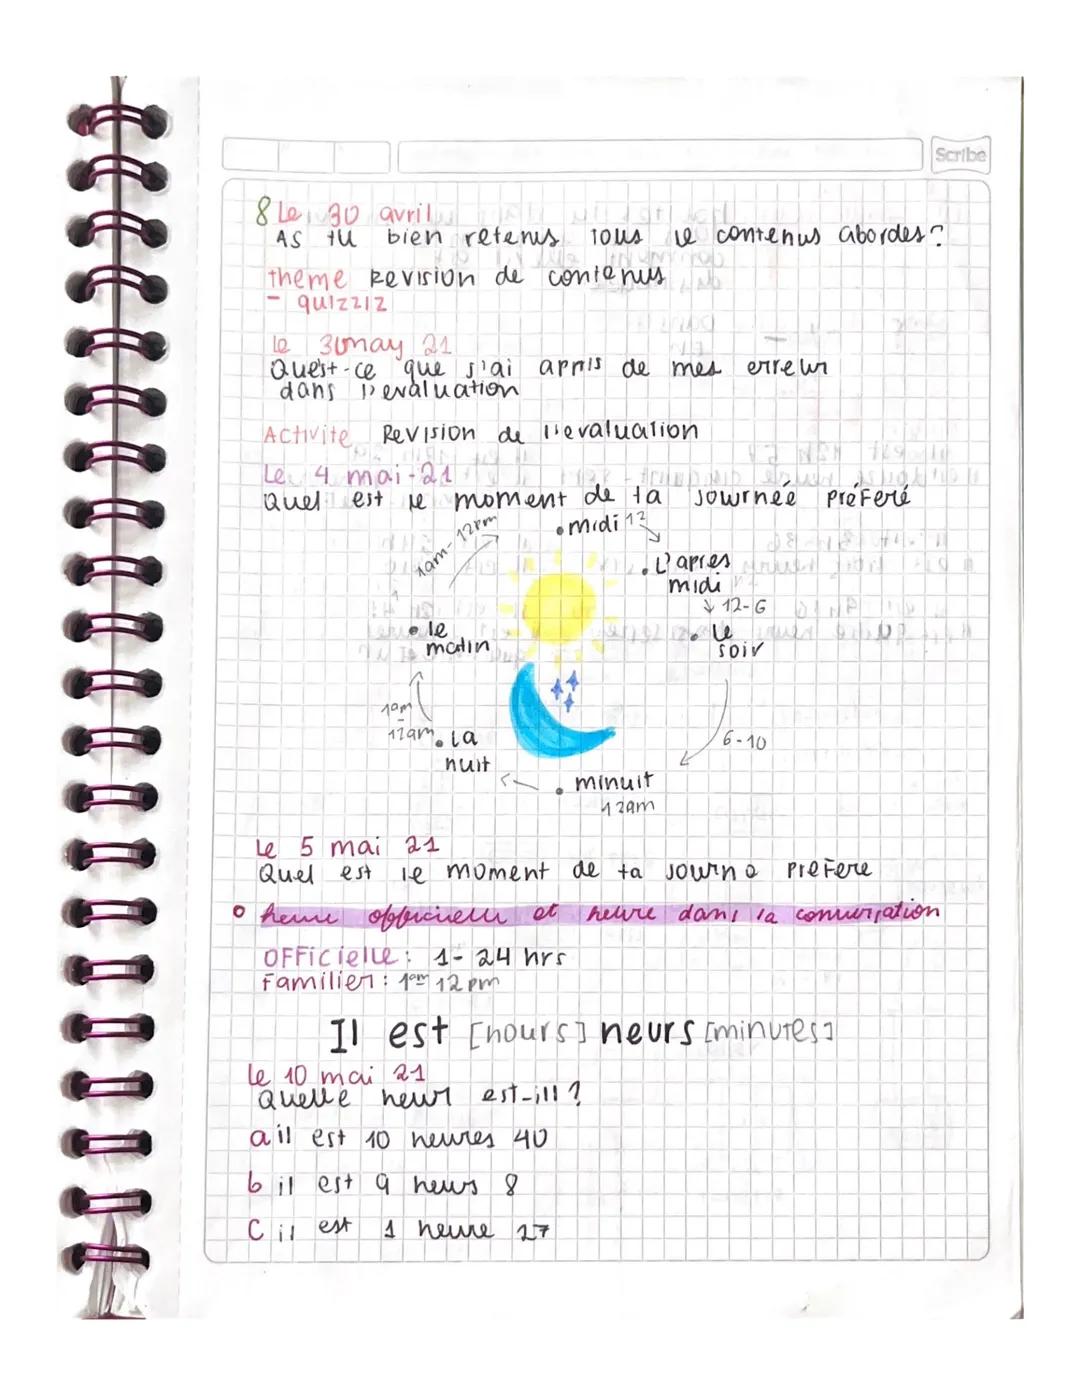 Scribe
8 Le 30 avril
As tu bien retenus tous le contenus abordes?
theme Revision de contenus
- quizziz
le 3 may 21
Quest-ce que j'ai appris de mes erreur
dans l'evaluation
Activite Revision de l'evaluation
Le 4 mai-21
Quel est le moment de ta journéé préferé
1am-12pm
• midi 12
• L'apres
midi
12-6
• le
matin
• le
soir
1am
-
12am
• la
nuit
6-10
• minuit
12am
Le 5 mai 21
Quel est le moment de ta journe prefere
heure officielle et heure dans la conversation
OFFicielle: 1-24 hrs
Familier: 1am 12pm
Il est [hours] heurs [minutes]
Le 10 mai 21
Quelle heur est-ill?
a il est 10 heures 40
b il est 9 heurs 8
C il est 1 heure 27